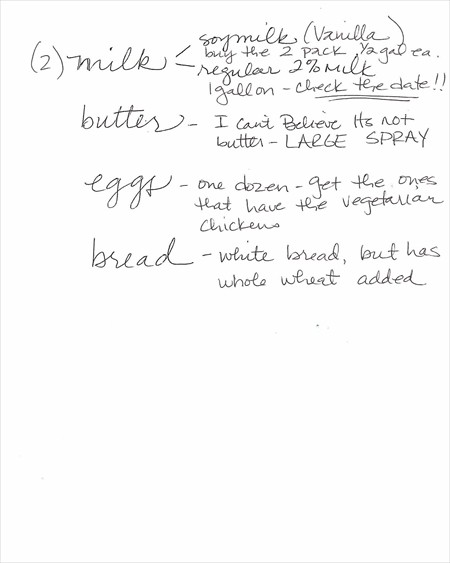 soymilk (Vanilla)
buy the 2 pack, 1/2 gal ea.
(2) milk < regular 2% Milk
1 gallon - check the date!!
butter - I can't Believe Its not
butter - LARGE SPRAY
eggs - one dozen - get the ones
that have the vegetarian
chickens
bread - white bread, but has
whole wheat added